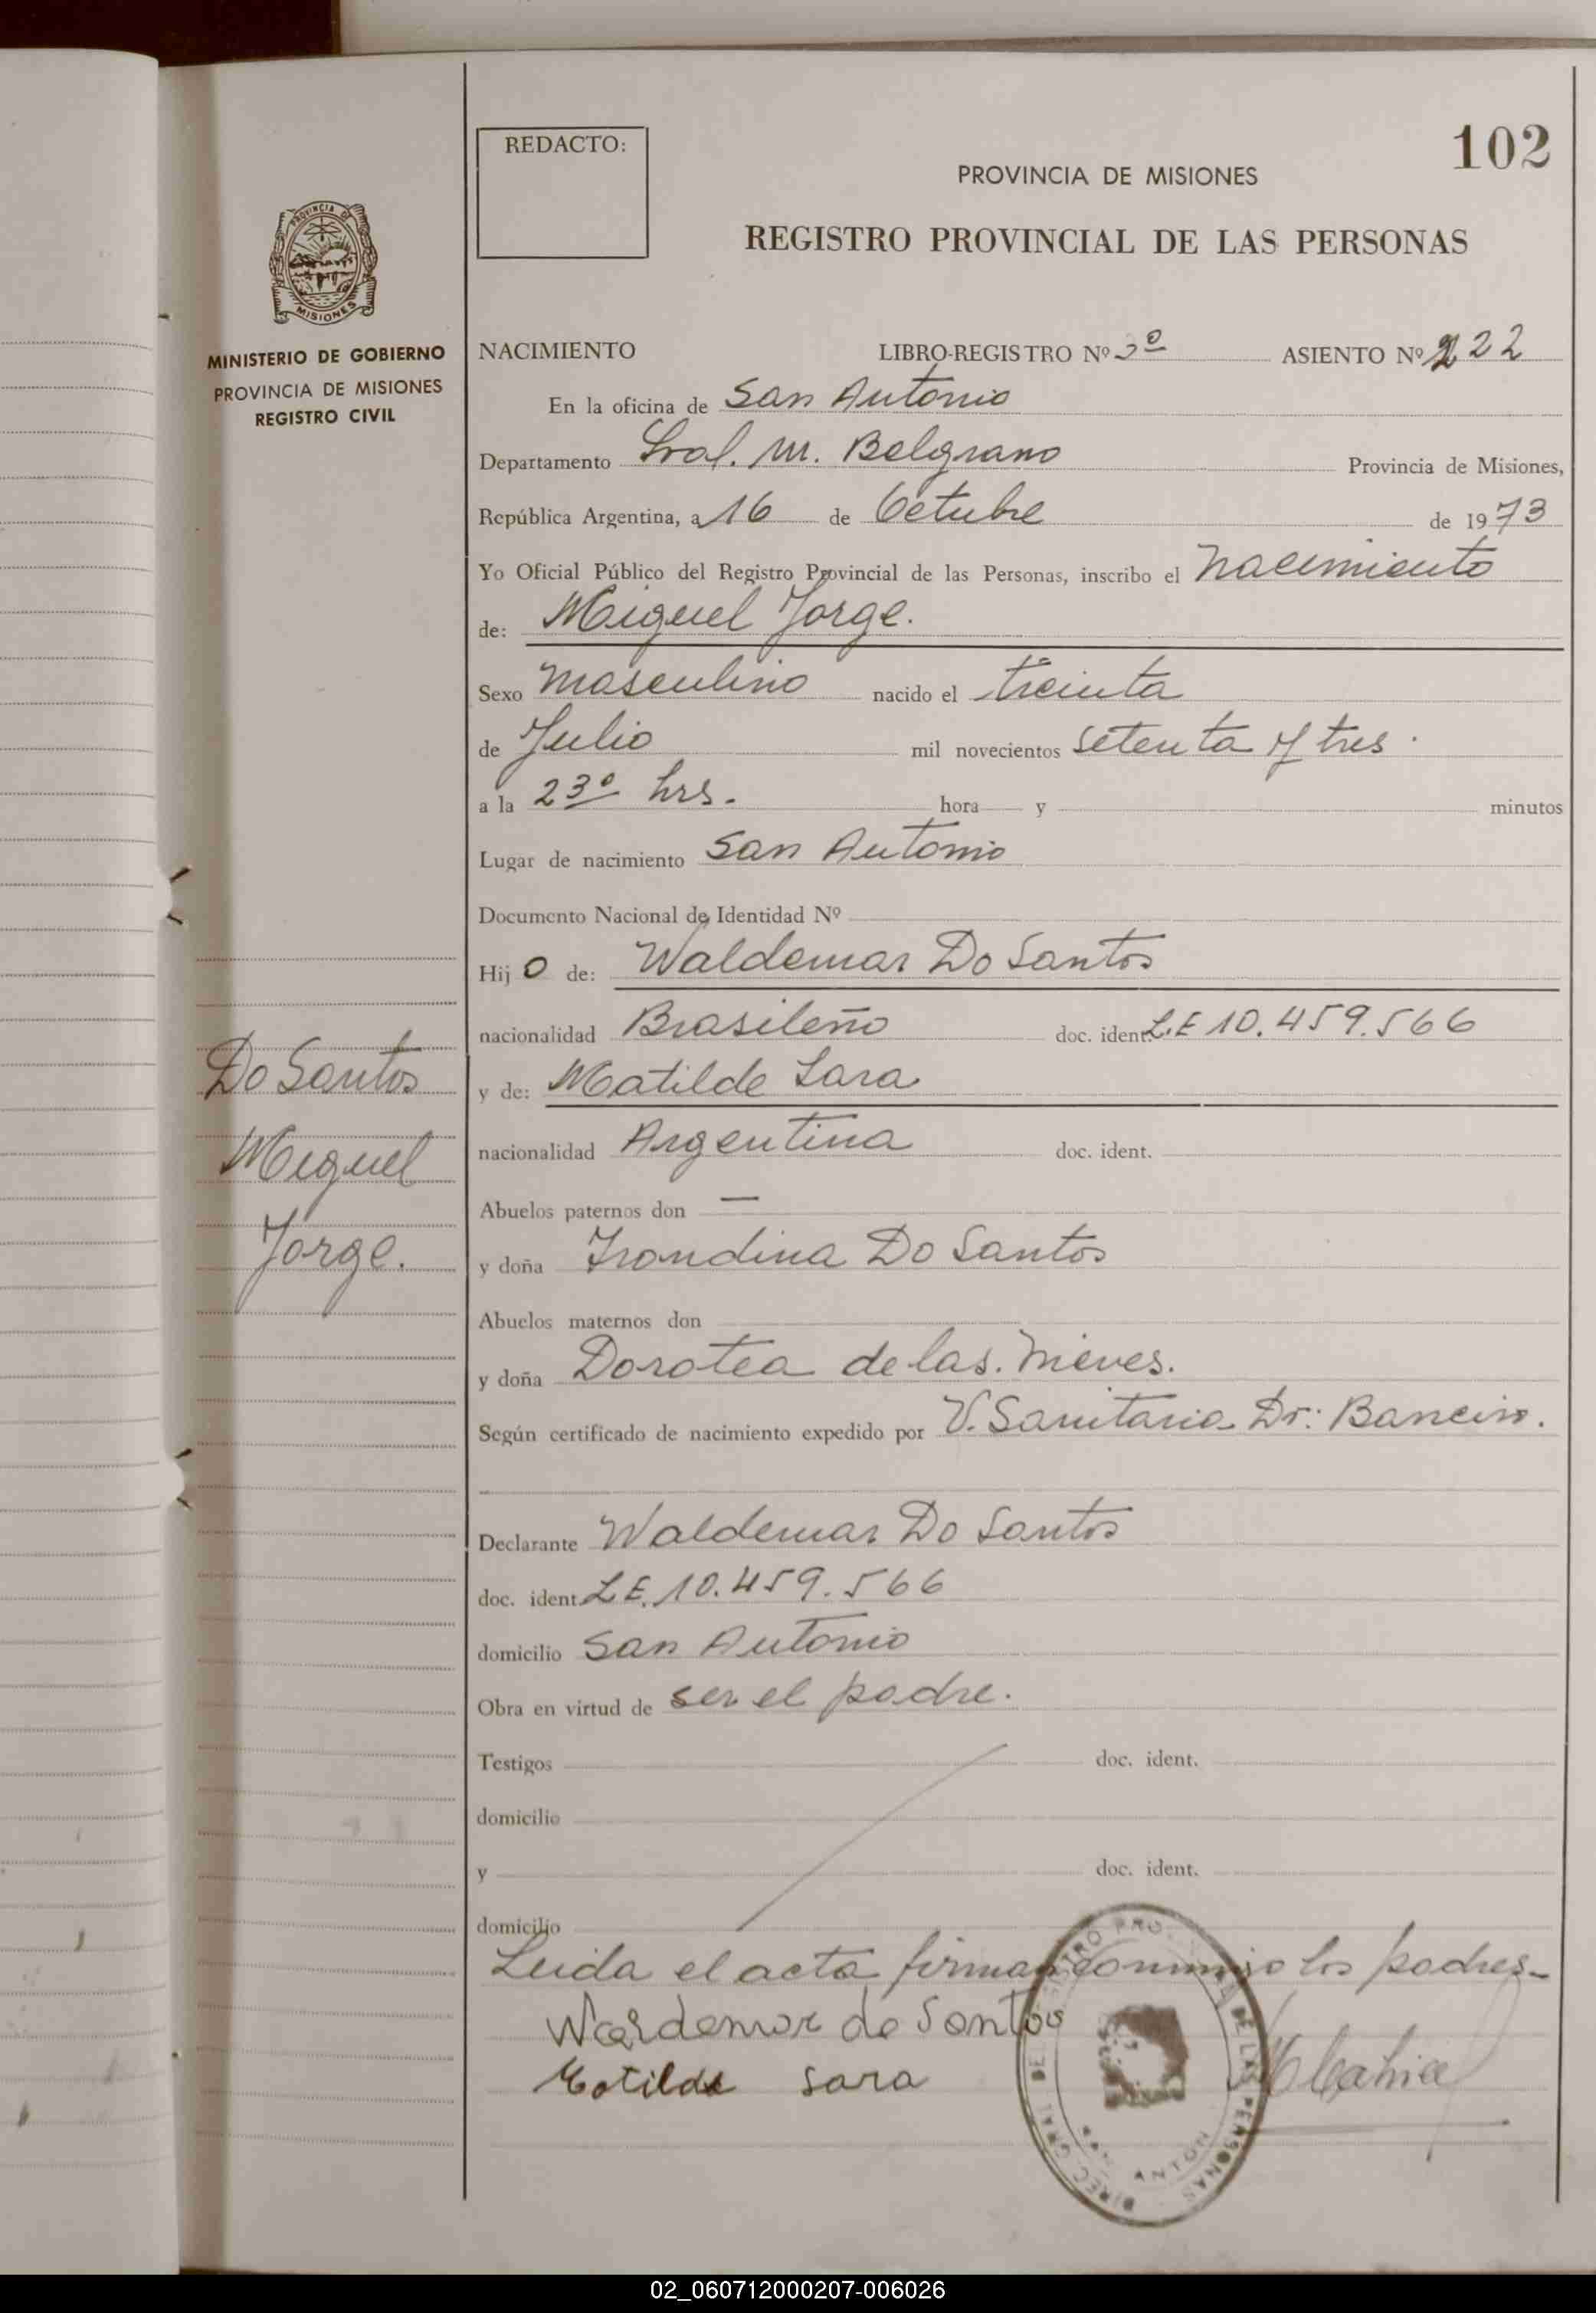 102
REDACTO:
PROVINCIA DE MISIONES
REGISTRO PROVINCIAL DE LAS PERSONAS
PROVINCIA DE
MISIONES
MINISTERIO DE GOBIERNO
PROVINCIA DE MISIONES
REGISTRO CIVIL
NACIMIENTO LIBRO-REGISTRO Nº ASIENTO Nº 222
En la oficina de San Antonio
Departamento Gral. M. Belgrano Provincia de Misiones,
República Argentina, a 16 de Octubre de 1973
Yo Oficial Público del Registro Provincial de las Personas, inscribo el nacimiento
de: Miguel Jorge.
Sexo masculino nacido el treinta
de Julio mil novecientos setenta y tres.
a la 23º hrs. hora y minutos
Lugar de nacimiento San Antonio
Documento Nacional de Identidad Nº
Hijo de: Waldemar Do Santos
nacionalidad Brasileño doc. ident. L.E 10.459.566
Do Santos
Miguel
Jorge.
y de: Matilde Sara
nacionalidad Argentina doc. ident.
Abuelos paternos don —
y doña Do Santos
Abuelos maternos don
y doña Dorotea de las. Nieves.
Según certificado de nacimiento expedido por V. Sanitaria Dr:
Declarante Waldemar Do Santos
doc. ident. L.E. 10.459.566
domicilio San Antonio
Obra en virtud de ser el padre.
Testigos doc. ident.
domicilio
y doc. ident.
domicilio
Leida el acta firman conmigo los padres-
Wardemar do Santos
Matilde Sara
DIREC. GRAL. DEL REGISTRO PRO DE LAS PERSONAS
SAN ANTONI
02_060712000207-006026